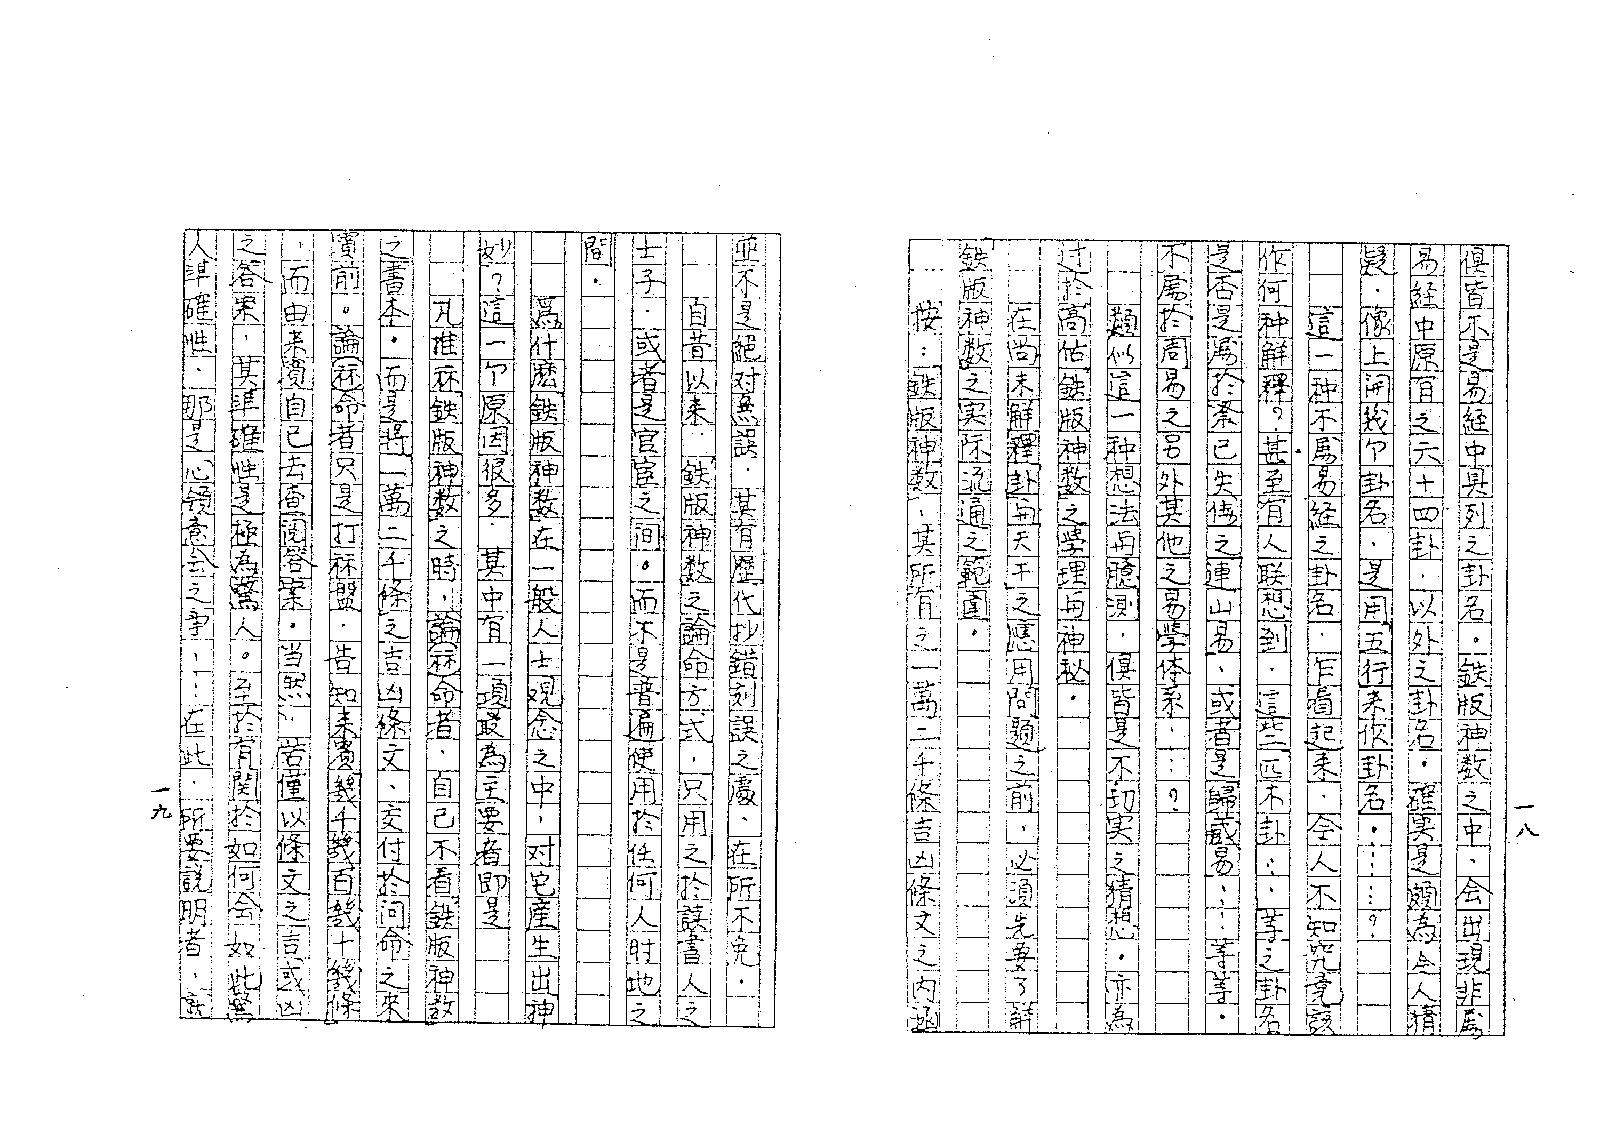 俱皆不是易經中具列之卦名。鉄版神数之中、会出現非屬
易經中原有之六十四卦、以外之卦名。確実是頗為令人猜
疑．像上開幾个卦名、是用五行来作卦名。……？
這一种不屬易經之卦名．乍看起来．令人不知究竟該
作何种解釋？甚至有人联想到．這些二匹不卦……等之卦名
是否是屬於業已失傳之連山易、或者是歸藏易……等等。
不屬於周易之另外其他之易學体系……？
類似這一种想法再臆測．俱皆是不切実之猜想．亦為
过於高估鉄版神数之學理再神秘．
在尚未解釋卦再天干之應用問題之前．必須先要了解
鉄版神数之実际流通之範圍．
按：鉄版神数、其所有之一萬二千條吉凶條文之内涵
一八
並不是絕对無誤．其有歷代抄錯刻誤之處、在所不免．
自昔以来．鉄版神数之論命方式．只用之於讀書人之
士子．或者是官宦之间。而不是普遍使用於任何人时地之
間．
為什麽鉄版神数在一般人士观念之中，对它產生出神
妙？這一个原因很多．其中有一項最為主要者即是
凡推祘鉄版神数之時，論祘命者．自己不看鉄版神数
之書本．而是將一萬二千條之吉凶條文、交付於问命之來
賓前。論祘命者只是打祘盤．告知来賓幾千幾百幾十幾條
．而由来賓自己去查閱答案．当然、若僅以條文之吉或凶
之答案．其準確性是極為驚人。至於有関於如何会如此驚
人準確性、那是心領意会之事……在此．所要説明者．就
一九